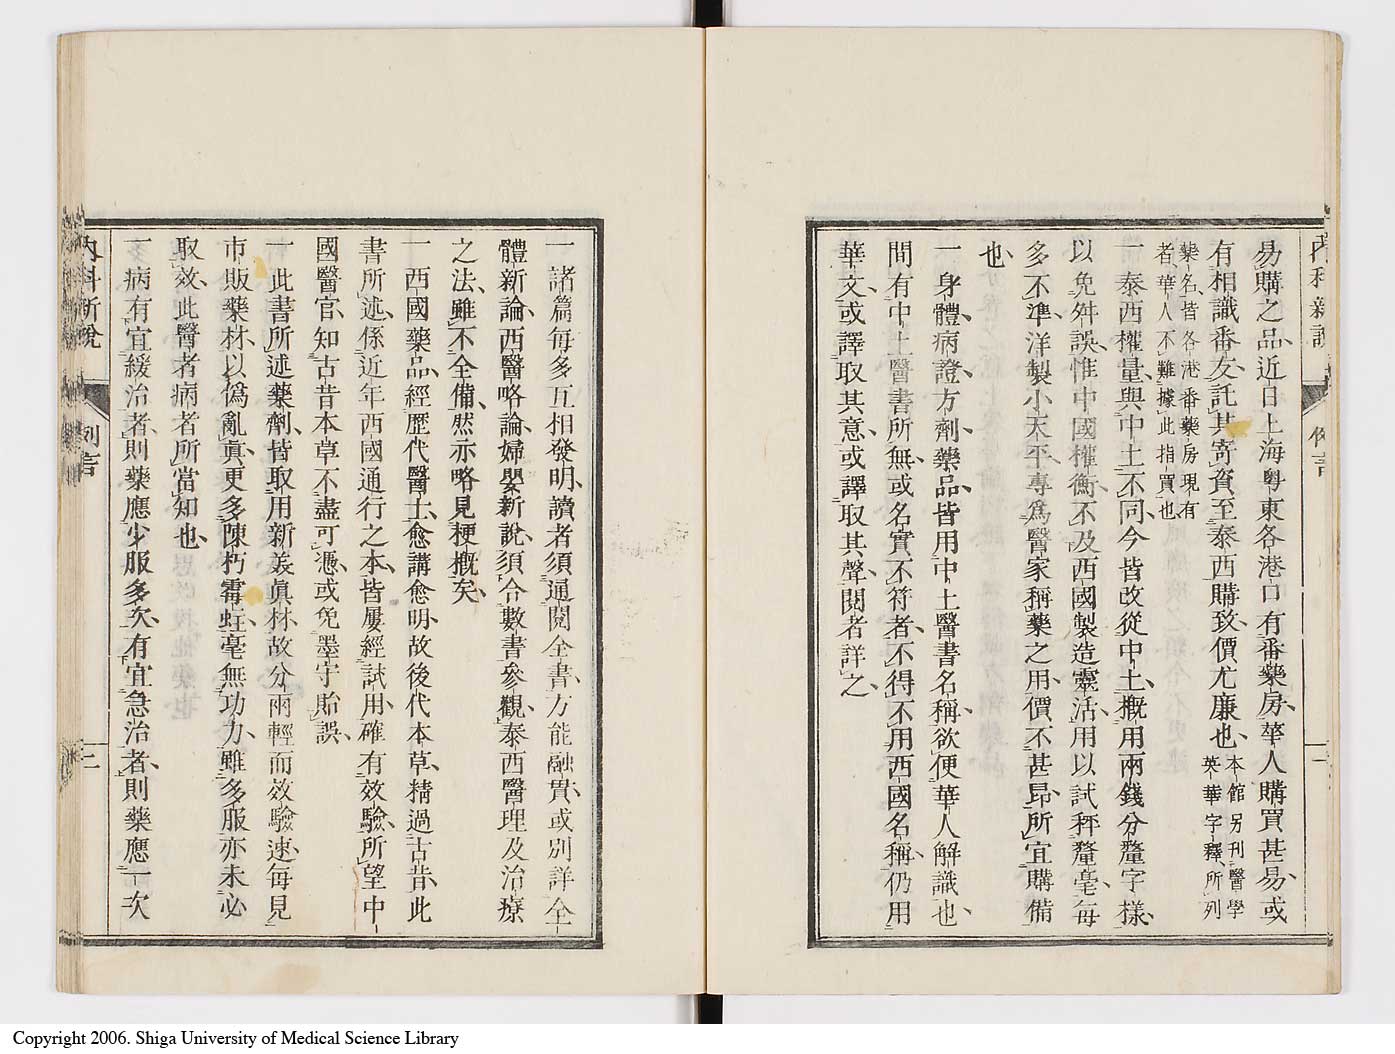 內科新說
例言
二
易購之品、近日上海粵東各港口有番藥房、華人購買甚易、或
有相識番友、託其寄資至泰西購致、價尤廉也、本館另刊醫學英華字釋、所列
藥名皆各港番藥房現有者、華人不難據此指買也
一泰西權量與中土不同、今皆改從中土、概用兩錢分釐字樣、
以免舛誤、惟中國權衡、不及西國製造靈活、用以試秤釐毫、每
多不準、洋製小天平、專爲醫家稱藥之用、價不甚昂、所宜購備
也、
一身體病證方劑藥品、皆用中土醫書名稱、欲便華人解識也、
間有中土醫書所無、或名實不符者、不得不用西國名稱、仍用
華文、或譯取其意、或譯取其聲、閱者詳之、
一諸篇每多互相發明、讀者須通閱全書、方能融貫、或別詳全
體新論、西醫略論、婦嬰新說、須合數書參觀、泰西醫理及治療
之法、雖不全備、然亦略見梗概矣、
一西國藥品、經歷代醫士、愈講愈明、故後代本草、精過古昔、此
書所述、係近年西國通行之本、皆屢經試用、確有效驗、所望中
國醫官、知古昔本草不盡可憑、或免墨守貽誤、
一此書所述藥劑、皆取用新美眞材、故分兩輕而效驗速、每見
市販藥材、以僞亂眞、更多陳朽霉蛀、毫無功力、雖多服亦未必
取效、此醫者病者所當知也、
一病有宜緩治者、則藥應少服多次、有宜急治者、則藥應一次
內科新說
例言
三
Copyright 2006. Shiga University of Medical Science Library